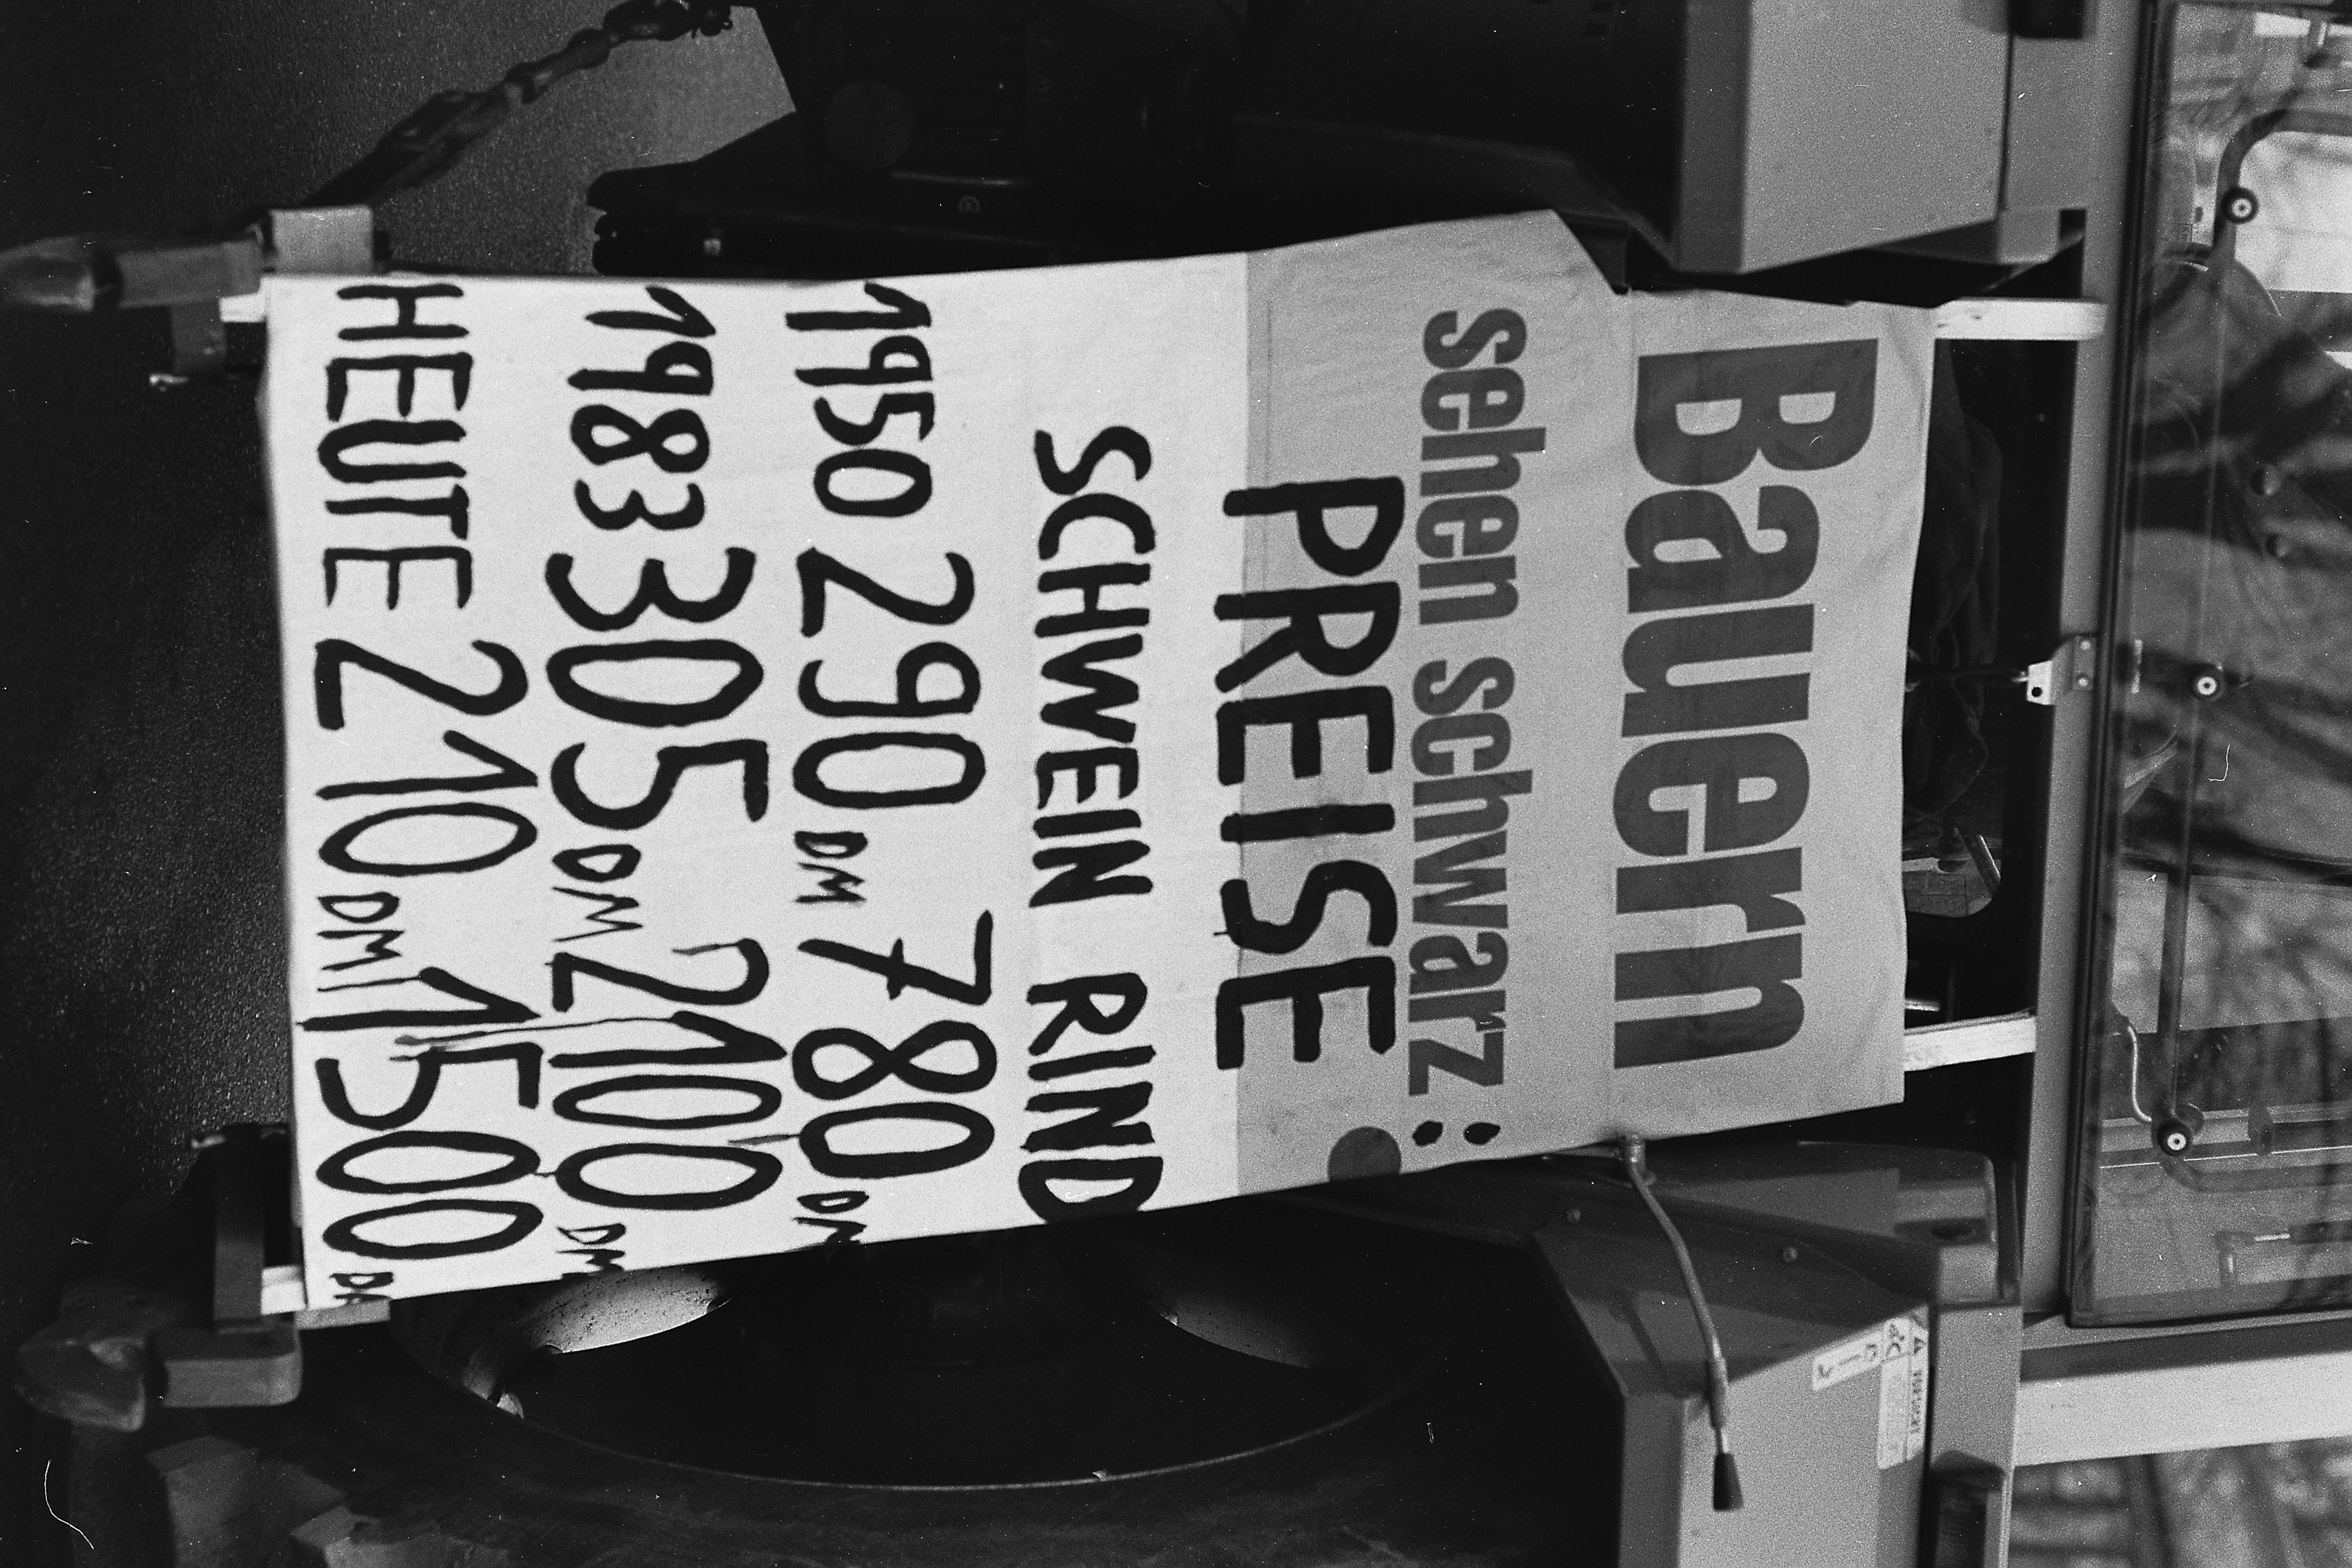 Bauern
sehen schwarz:
PREISE
SCHWEIN RIND
1950 290 DM 780 DM
1983 305 DM 2100 DM
HEUTE 210 DM 1500